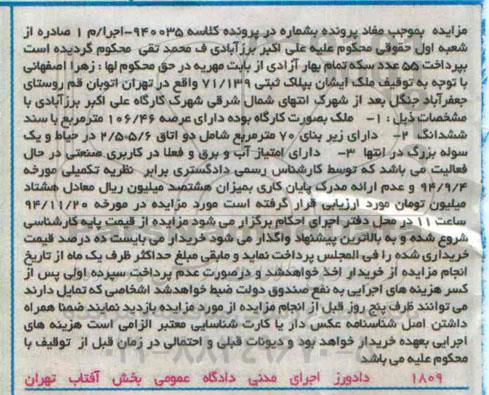 مزایده بموجب مفاد پرونده بشماره در پرونده کلاسه ۹۴۰۰۳۵-اجرا/م ۱ صادره از
شعبه اول حقوقی محکوم علیه علی اکبر برزآبادی ف محمد تقی محکوم گردیده است
بپرداخت ۵۵ عدد سکه تمام بهار آزادی از بابت مهریه در حق محکوم لها : زهرا اصفهانی
با توجه به توقیف ملک ایشان بپلاک ثبتی ۷۱/۱۳۹ واقع در تهران اتوبان قم روستای
جعفرآباد جنگل بعد از شهرک انتهای شمال شرقی شهرک کارگاه علی اکبر برزآبادی با
مشخصات ذیل : ۱- ملک بصورت کارگاه بوده دارای عرصه ۱۰۶/۴۶ مترمربع با سند
ششدانگ ۲- دارای زیر بنای ۷۰ مترمربع شامل دو اتاق ۲/۵۰۵/۶ در حیاط و یک
سوله بزرگ در انتها ۳- دارای امتیاز آب و برق و فعلا در کاربری صنعتی در حال
فعالیت می باشد که توسط کارشناس رسمی دادگستری برابر نظریه تکمیلی مورخه
۹۴/۹/۴ و عدم ارائه مدرک پایان کاری بمیزان هشتصد میلیون ریال معادل هشتاد
میلیون تومان مورد ارزیابی قرار گرفته است مورد مزایده در مورخه ۹۴/۱۱/۲۰
ساعت ۱۱ در محل دفتر اجرای احکام برگزار می شود مزایده از قیمت پایه کارشناسی
شروع شده و به بالاترین پیشنهاد واگذار می شود خریدار می بایست ده درصد قیمت
خریداری شده را فی المجلس پرداخت نماید و مابقی مبلغ حداکثر ظرف یک ماه از تاریخ
انجام مزایده از خریدار اخذ خواهدشد و درصورت عدم پرداخت سپرده اولی پس از
کسر هزینه های اجرایی به نفع صندوق دولت ضبط خواهدشد اشخاصی که تمایل دارند
می توانند ظرف پنج روز قبل از انجام مزایده از مورد مزایده بازدید نمایند ضمنا همراه
داشتن اصل شناسنامه عکس دار یا کارت شناسایی معتبر الزامی است هزینه های
اجرایی بعهده خریدار خواهد بود و دیونات قبلی و احتمالی در زمان قبل از توقیف با
محکوم علیه می باشد
۱۸۰۹ دادورز اجرای مدنی دادگاه عمومی بخش آفتاب تهران